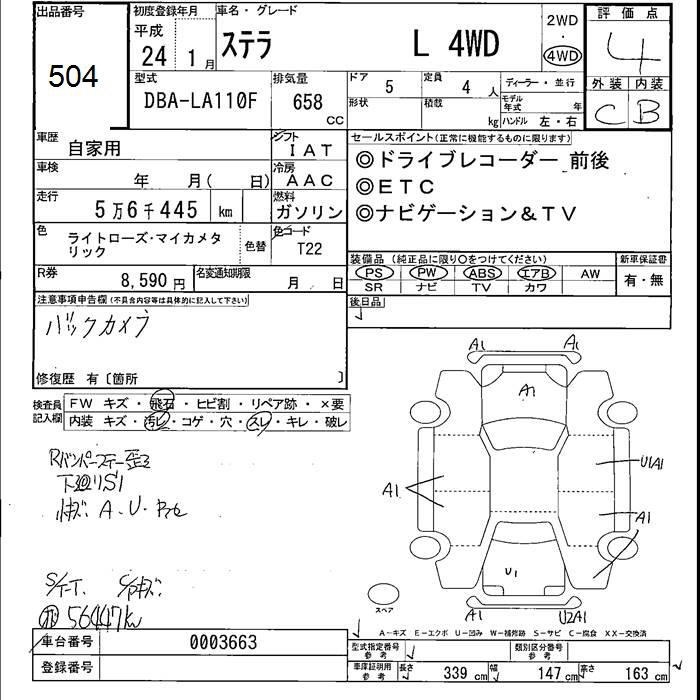 出品番号
504
初度登録年月
平成
24 1月
車名・グレード
ステラ L 4WD
2WD
・
4WD
評価点
4
外装 内装
C B
型式
DBA-LA110F
排気量
658
CC
ドア 5
定員 4 人
ディーラー・並行
形状
積載 kg
モデル年式 年
ハンドル 左・右
車歴
自家用
シフト
IAT
車検
年 月( 日)
冷房
AAC
走行
5万6千445 km
燃料
ガソリン
色
ライトローズ・マイカメタ
リック
色替
色コード
T22
R券
8,590 円
名変通知期限
月 日
セールスポイント(正常に機能するものに限ります)
◎ドライブレコーダー 前後
◎ETC
◎ナビゲーション&TV
装備品(純正品に限り○をつけてください)
新車保証書
PS PW ABS エアB AW
SR ナビ TV カワ
有・無
後日品
注意事項申告欄(不具合内容等は具体的に記入して下さい)
バックカメラ
修復歴 有〔箇所 〕
検査員
記入欄
FW キズ・飛石・ヒビ割・リペア跡・×要
内装 キズ・汚レ・コゲ・穴・スレ・キレ・破レ
Rバンパーステー歪ミ
下廻リS1
小キズ A・U・
S/T-T. C/Pキズ.
56447km
A1 A1
A1
U1A1
A1
A1
U1
A1 U2A1
スペア
A-キズ E-エクボ U-凹み W-補修跡 S-サビ C-腐食 XX-交換済
車台番号
0003663
登録番号
型式指定番号
参考
類別区分番号
参考
車庫証明用
参考
長さ 339 cm
幅 147 cm
高さ 163 cm